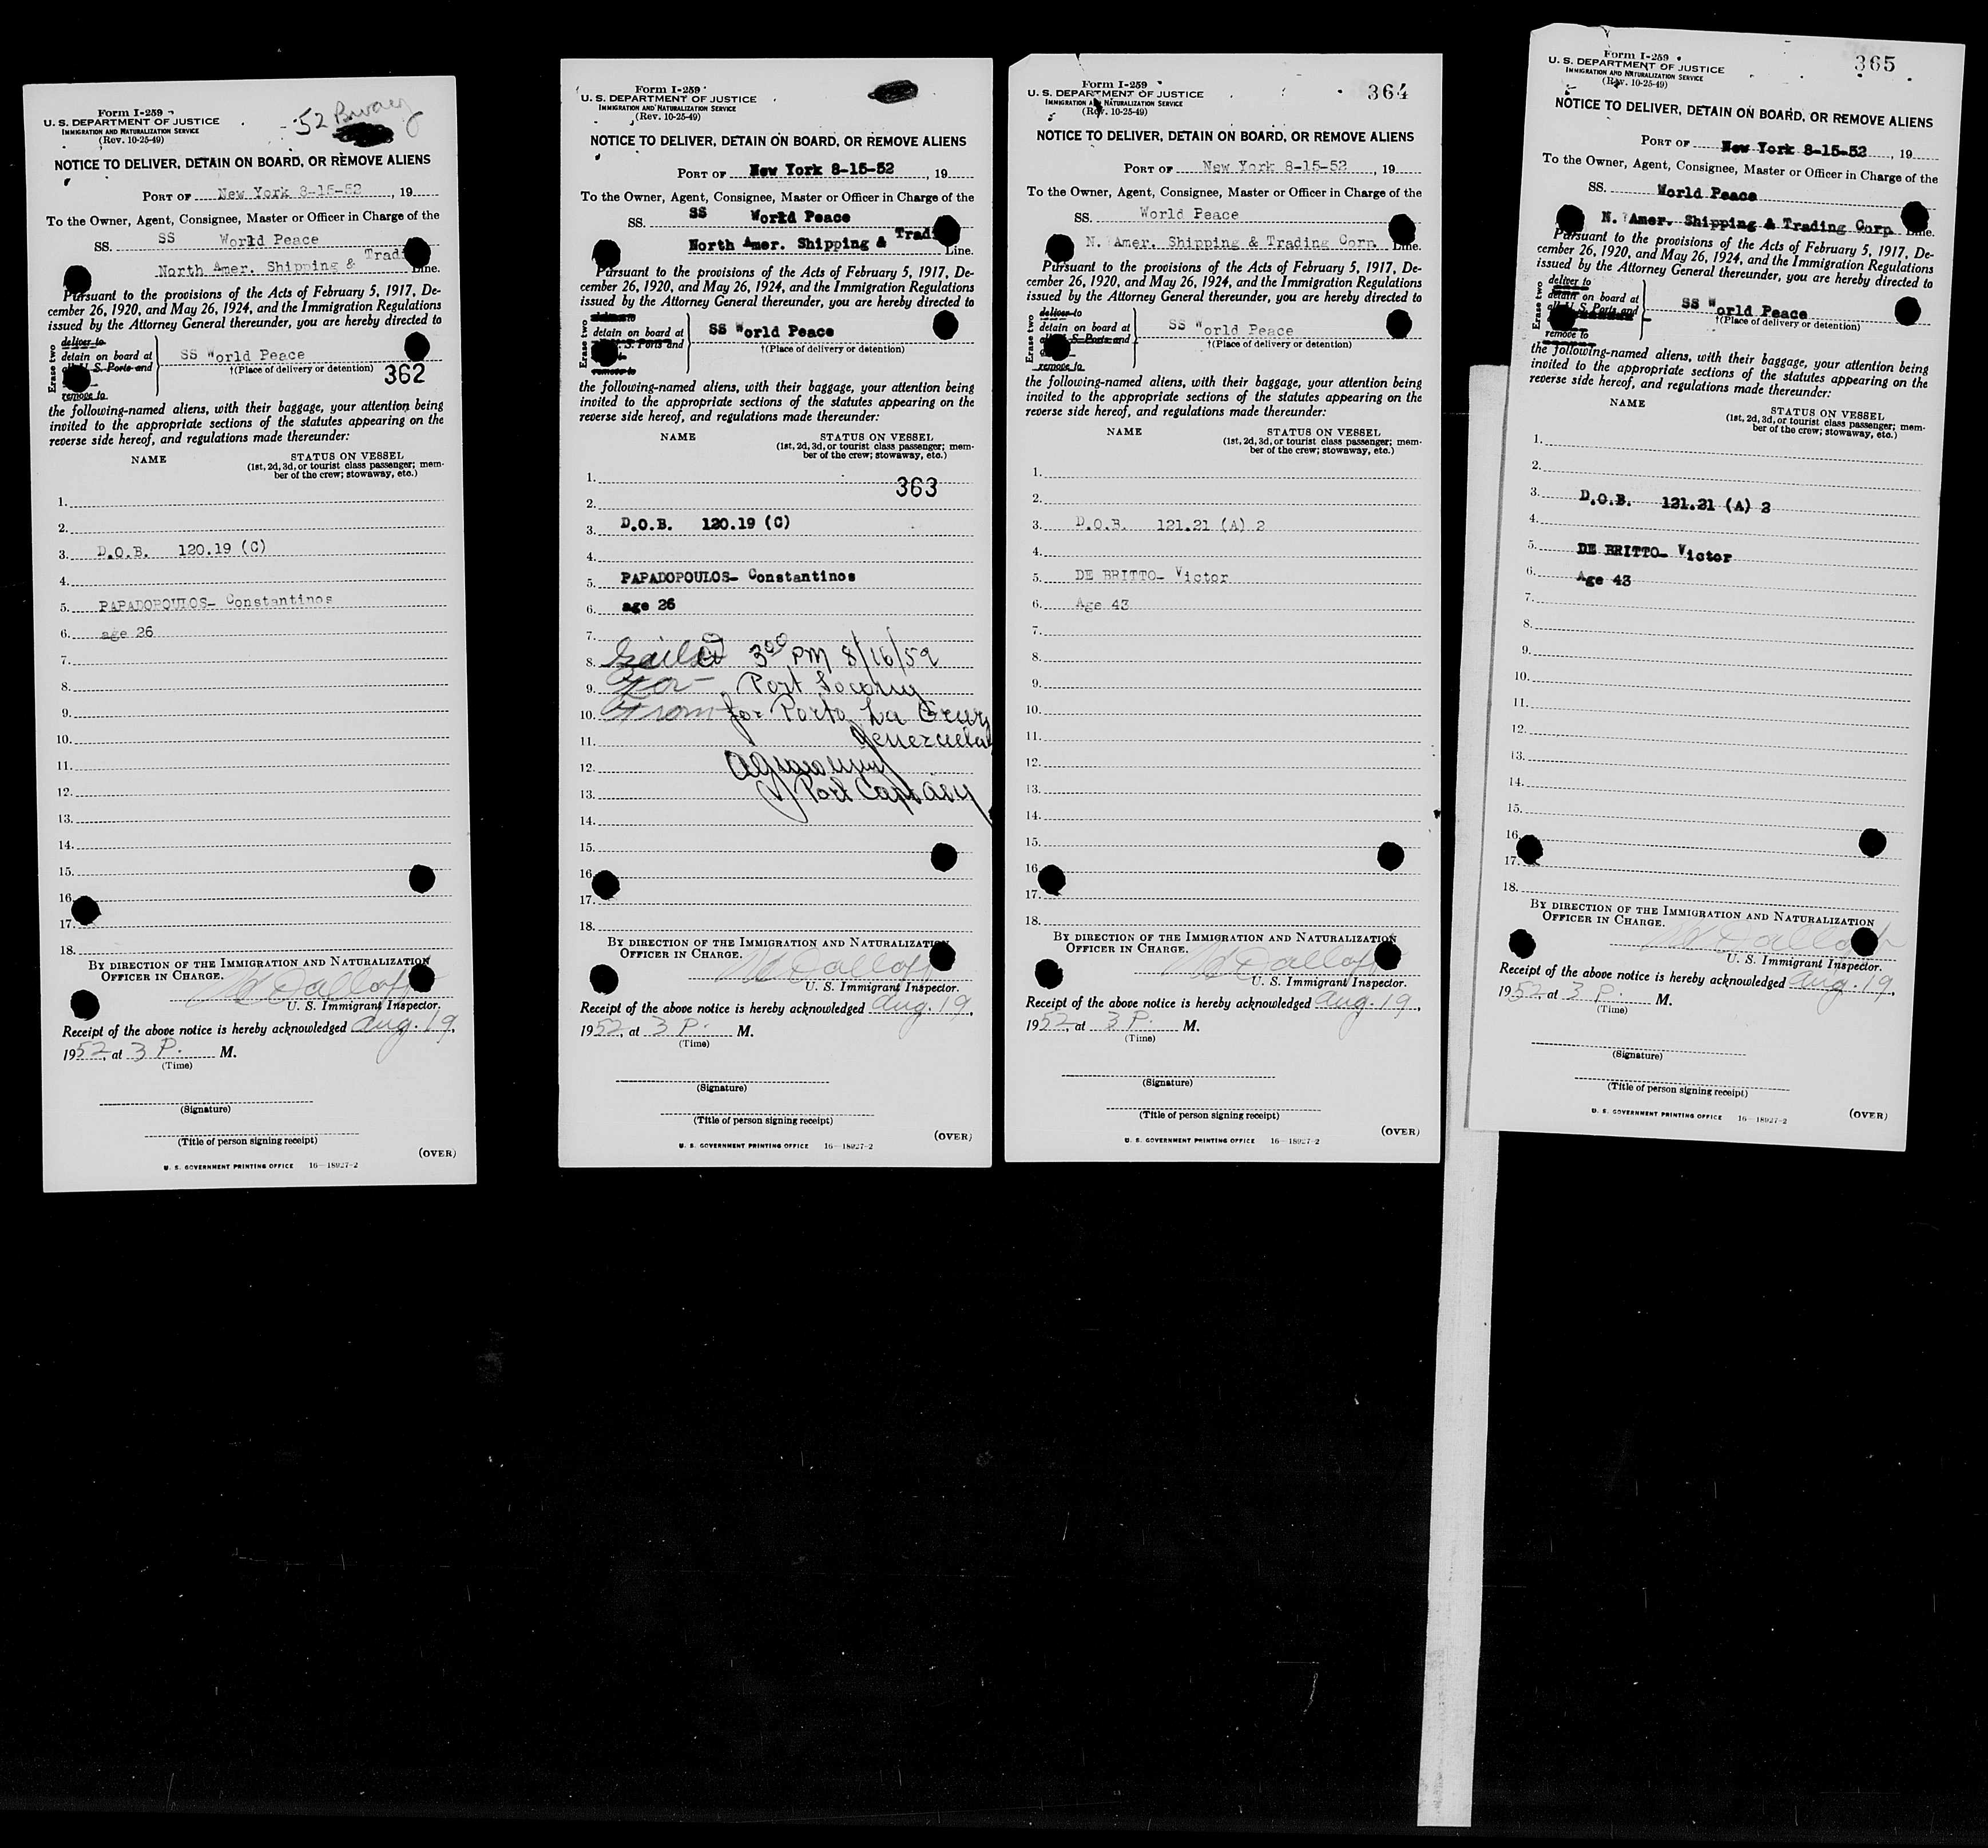 Form I-259
U. S. DEPARTMENT OF JUSTICE
IMMIGRATION AND NATURALIZATION SERVICE
(Rev. 10-25-49)
52 Bway
NOTICE TO DELIVER, DETAIN ON BOARD, OR REMOVE ALIENS
PORT OF New York 8-15-52, 19
To the Owner, Agent, Consignee, Master or Officer in Charge of the
SS. SS World Peace
North Amer. Shipping & Tradi Line.
Pursuant to the provisions of the Acts of February 5, 1917, De-
cember 26, 1920, and May 26, 1924, and the Immigration Regulations
issued by the Attorney General thereunder, you are hereby directed to
Erase two
deliver to
detain on board at
U. S. Ports and
remove to
SS World Peace
†(Place of delivery or detention)
362
the following-named aliens, with their baggage, your attention being
invited to the appropriate sections of the statutes appearing on the
reverse side hereof, and regulations made thereunder:
NAME STATUS ON VESSEL
(1st, 2d, 3d, or tourist class passenger; mem-
ber of the crew; stowaway, etc.)
1.
2.
3. D.O.B. 120.19 (C)
4.
5. PAPADOPOULOS- Constantinos
6. age 26
7.
8.
9.
10.
11.
12.
13.
14.
15.
16.
17.
18.
BY DIRECTION OF THE IMMIGRATION AND NATURALIZATION
OFFICER IN CHARGE.
U. S. Immigrant Inspector.
Receipt of the above notice is hereby acknowledged Aug. 19,
1952, at 3 P. M.
(Time)
(Signature)
(Title of person signing receipt)
(OVER)
U. S. GOVERNMENT PRINTING OFFICE 16—18927-2
Form I-259
U. S. DEPARTMENT OF JUSTICE
IMMIGRATION AND NATURALIZATION SERVICE
(Rev. 10-25-49)
NOTICE TO DELIVER, DETAIN ON BOARD, OR REMOVE ALIENS
PORT OF New York 8-15-52, 19
To the Owner, Agent, Consignee, Master or Officer in Charge of the
SS. SS World Peace
North Amer. Shipping & Tradi Line.
Pursuant to the provisions of the Acts of February 5, 1917, De-
cember 26, 1920, and May 26, 1924, and the Immigration Regulations
issued by the Attorney General thereunder, you are hereby directed to
Erase two
detain on board at
S. Ports and
remove to
SS World Peace
†(Place of delivery or detention)
the following-named aliens, with their baggage, your attention being
invited to the appropriate sections of the statutes appearing on the
reverse side hereof, and regulations made thereunder:
NAME STATUS ON VESSEL
(1st, 2d, 3d, or tourist class passenger; mem-
ber of the crew; stowaway, etc.)
1.
363
2.
3. D.O.B. 120.19 (C)
4.
5. PAPADOPOULOS- Constantinos
6. age 26
7.
8. Sailed 3 00 PM 8/16/52
9. For Port Socony
10. From for Porto La Cruz
11. Venezuela
12.
13. Port Captain
14.
15.
16.
17.
18.
BY DIRECTION OF THE IMMIGRATION AND NATURALIZATION
OFFICER IN CHARGE.
U. S. Immigrant Inspector.
Receipt of the above notice is hereby acknowledged Aug. 19,
1952, at 3 P. M.
(Time)
(Signature)
(Title of person signing receipt)
(OVER)
U. S. GOVERNMENT PRINTING OFFICE 16—18927-2
Form I-259
U. S. DEPARTMENT OF JUSTICE
IMMIGRATION AND NATURALIZATION SERVICE
(Rev. 10-25-49)
364
NOTICE TO DELIVER, DETAIN ON BOARD, OR REMOVE ALIENS
PORT OF New York 8-15-52, 19
To the Owner, Agent, Consignee, Master or Officer in Charge of the
SS. World Peace
N. Amer. Shipping & Trading Corp. Line.
Pursuant to the provisions of the Acts of February 5, 1917, De-
cember 26, 1920, and May 26, 1924, and the Immigration Regulations
issued by the Attorney General thereunder, you are hereby directed to
Erase two
deliver to
detain on board at
S. Ports and
remove to
SS World Peace
†(Place of delivery or detention)
the following-named aliens, with their baggage, your attention being
invited to the appropriate sections of the statutes appearing on the
reverse side hereof, and regulations made thereunder:
NAME STATUS ON VESSEL
(1st, 2d, 3d, or tourist class passenger; mem-
ber of the crew; stowaway, etc.)
1.
2.
3. D.O.B. 121.21 (A) 2
4.
5. DE BRITTO- Victor
6. Age 43
7.
8.
9.
10.
11.
12.
13.
14.
15.
16.
17.
18.
BY DIRECTION OF THE IMMIGRATION AND NATURALIZATION
OFFICER IN CHARGE.
U. S. Immigrant Inspector.
Receipt of the above notice is hereby acknowledged Aug. 19,
1952, at 3 P. M.
(Time)
(Signature)
(Title of person signing receipt)
(OVER)
U. S. GOVERNMENT PRINTING OFFICE 16—18927-2
Form I-259
U. S. DEPARTMENT OF JUSTICE
IMMIGRATION AND NATURALIZATION SERVICE
(Rev. 10-25-49)
365
NOTICE TO DELIVER, DETAIN ON BOARD, OR REMOVE ALIENS
PORT OF New York 8-15-52, 19
To the Owner, Agent, Consignee, Master or Officer in Charge of the
SS. World Peace
N. Amer. Shipping & Trading Corp Line.
Pursuant to the provisions of the Acts of February 5, 1917, De-
cember 26, 1920, and May 26, 1924, and the Immigration Regulations
issued by the Attorney General thereunder, you are hereby directed to
Erase two
deliver to
detain on board at
S. Ports and
remove to
SS World Peace
†(Place of delivery or detention)
the following-named aliens, with their baggage, your attention being
invited to the appropriate sections of the statutes appearing on the
reverse side hereof, and regulations made thereunder:
NAME STATUS ON VESSEL
(1st, 2d, 3d, or tourist class passenger; mem-
ber of the crew; stowaway, etc.)
1.
2.
3. D.O.B. 121.21 (A) 2
4.
5. DE BRITTO- Victor
6. Age 43
7.
8.
9.
10.
11.
12.
13.
14.
15.
16.
17.
18.
BY DIRECTION OF THE IMMIGRATION AND NATURALIZATION
OFFICER IN CHARGE.
U. S. Immigrant Inspector.
Receipt of the above notice is hereby acknowledged Aug. 19,
1952, at 3 P. M.
(Time)
(Signature)
(Title of person signing receipt)
(OVER)
U. S. GOVERNMENT PRINTING OFFICE 16—18927-2